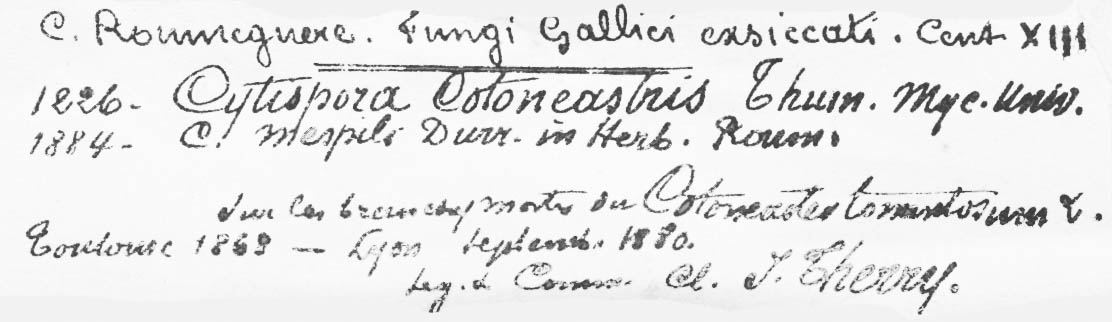 C. Roumeguere. Fungi Gallici exsiccati. Cent XIII
1226- Cytispora Cotoneastris Thum. Myc. Univ.
1884- C. mespili Durr. in Herb. Roum.
Sur les branches mortes du Cotoneaster tomentosum L.
Toulouse 1868 — Lyon Septemb. 1880.
Leg. & Comm. Cl. J. Therry.